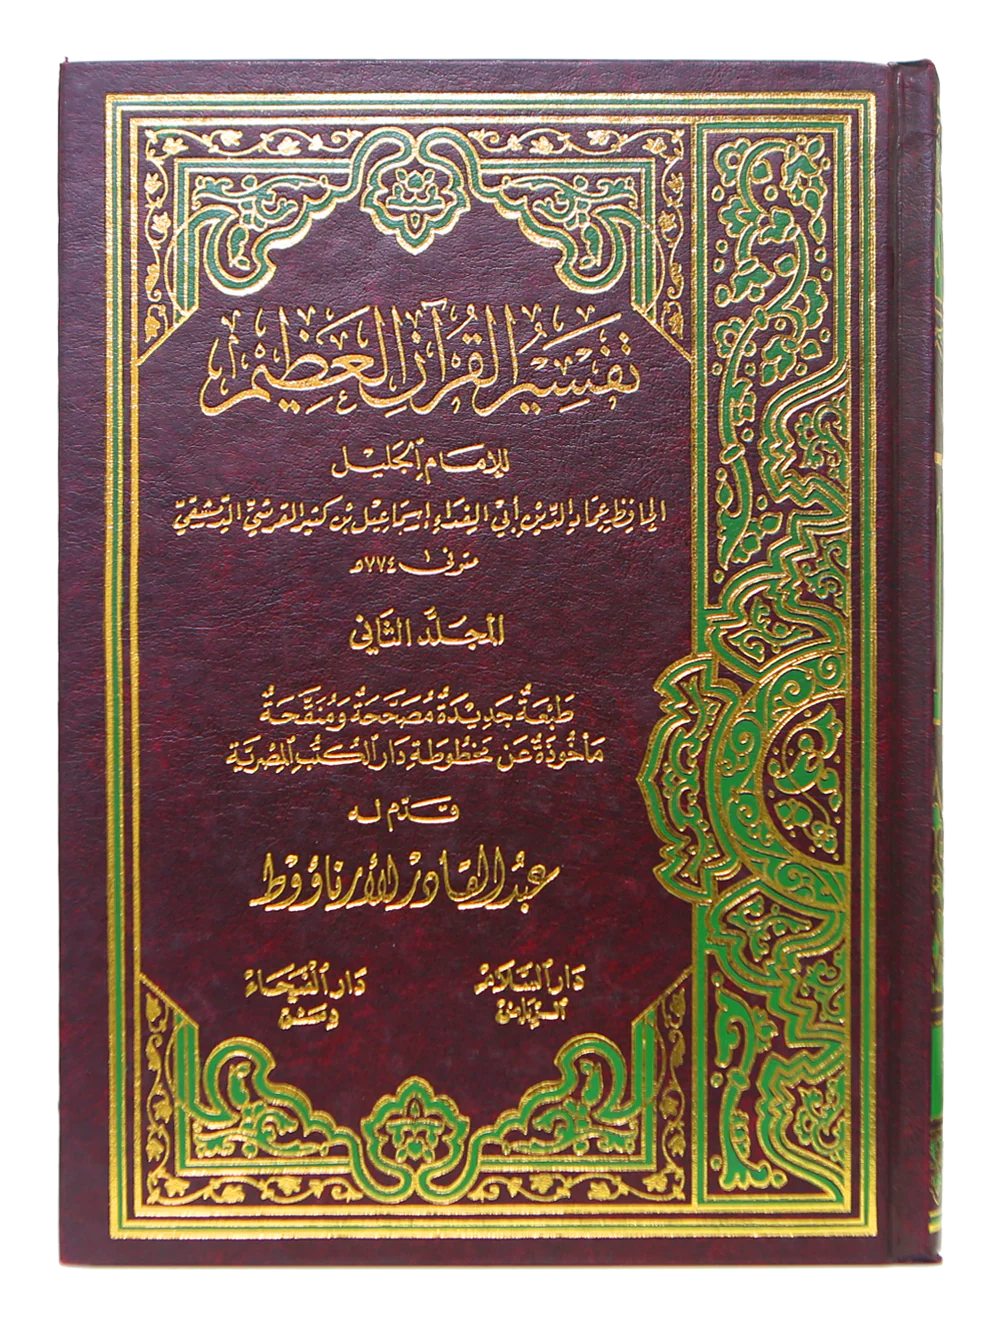 تفسير القرآن العظيم
للإمام الجليل
الحافظ عماد الدين أبي الفداء إسماعيل بن كثير القرشي الدمشقي
متوفى ٧٧٤هـ
المجلد الثاني
طبعة جديدة مصححة ومنقحة
مأخوذة عن مخطوطة دار الكتب المصرية
قدم له
عبد القادر الأرناؤوط
دار السلام
الرياض
دار الفيحاء
دمشق